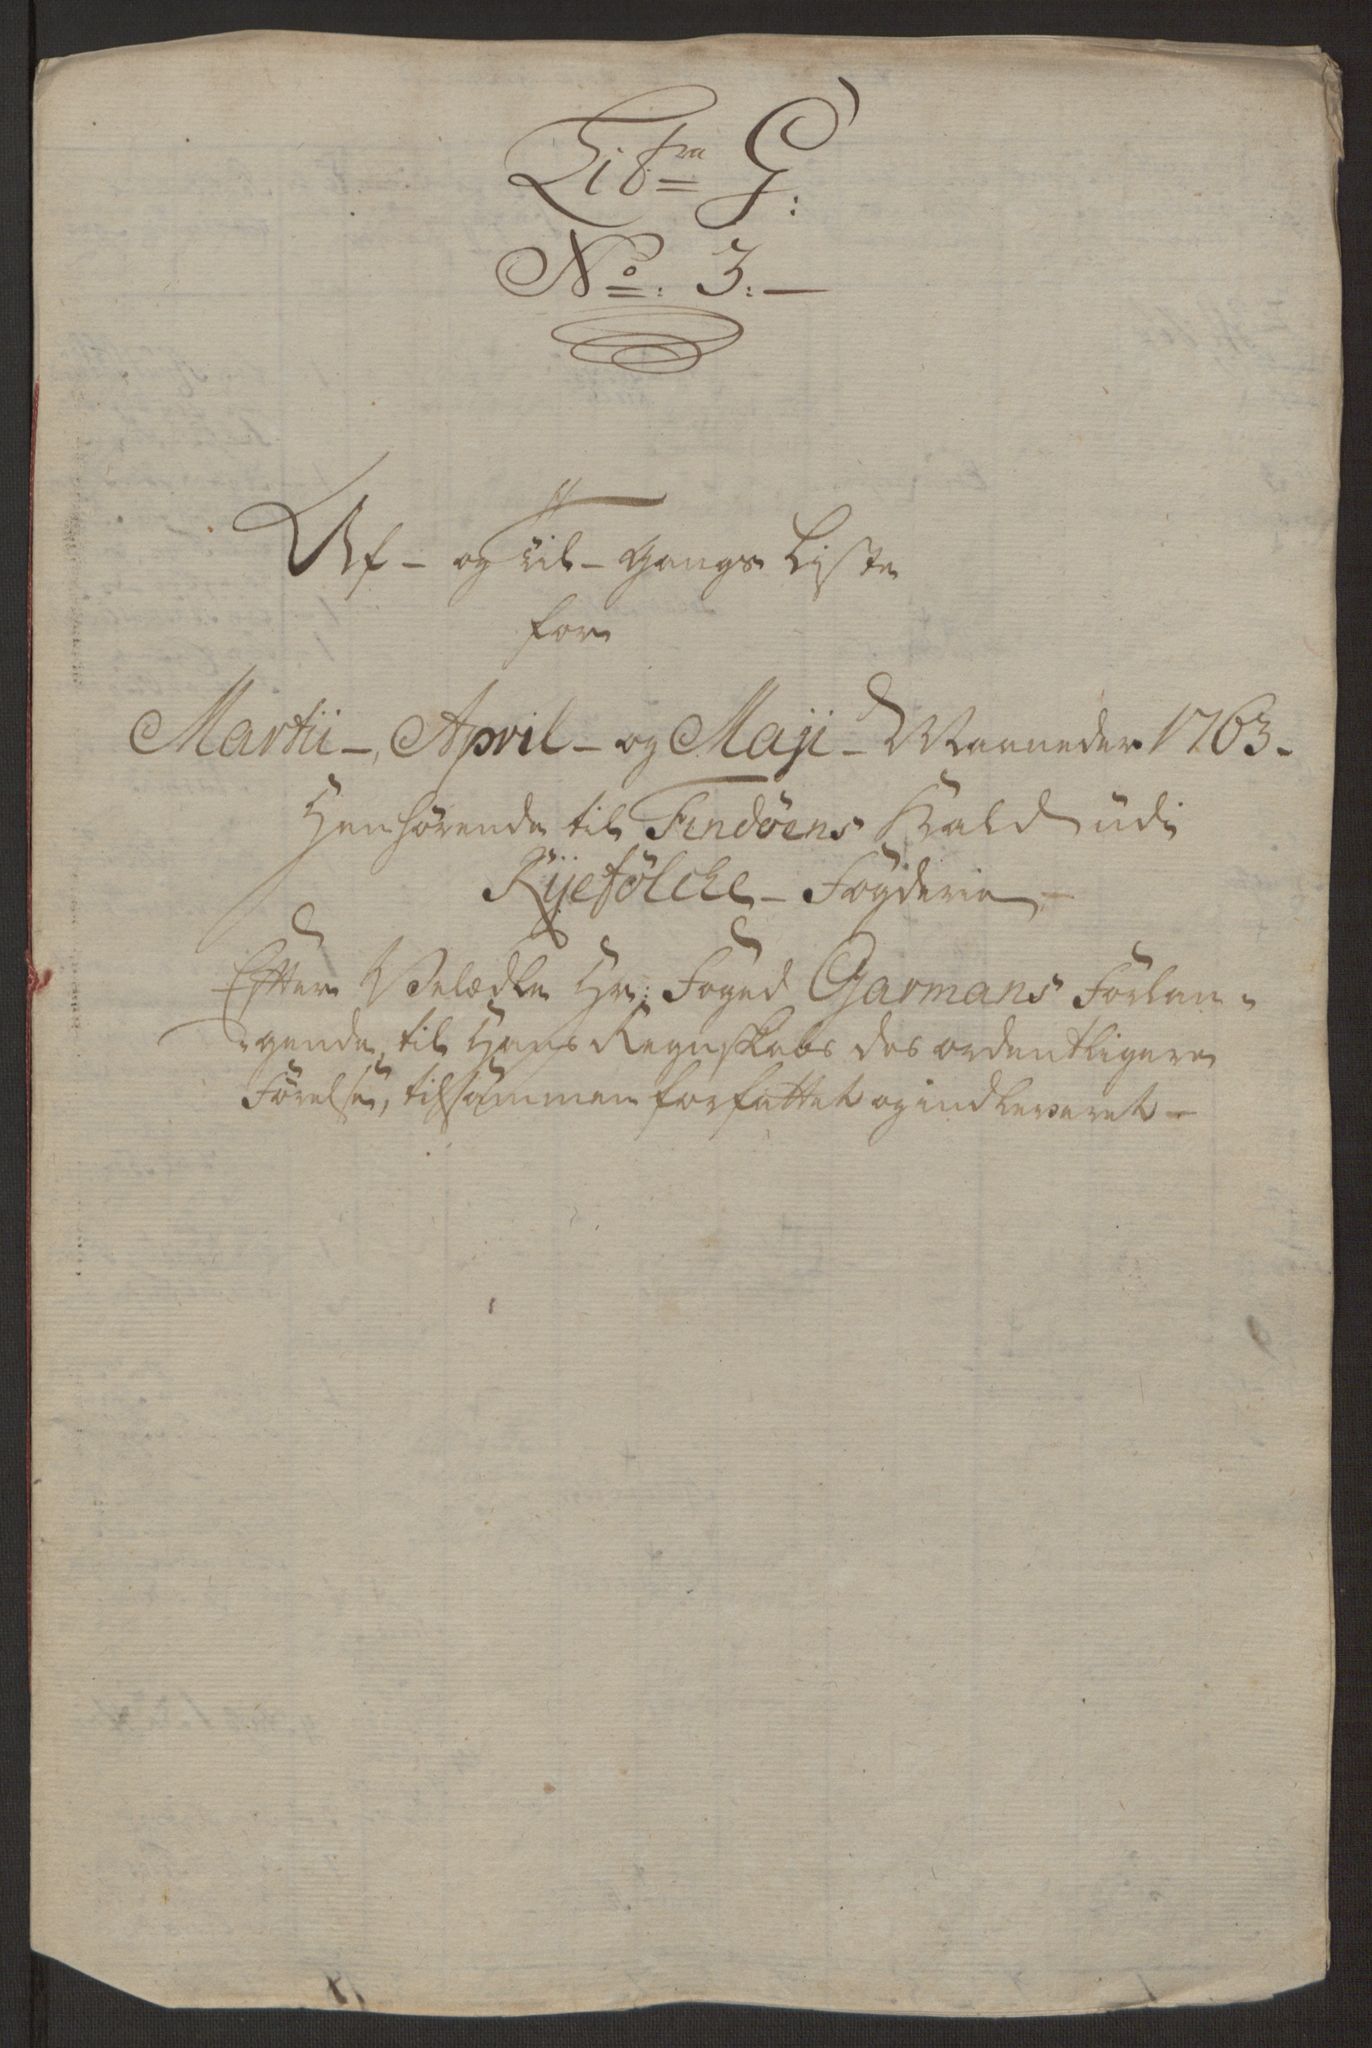 Litra G:
No: 3:—
Af- og Til-Gangs Liste
for
Martii-, April- og Maji- Maaneder 1763-
Henhørende til Findöens Kald udi
Ryefölcke- Fogderie-
Efter Velædle Hr: Foged Garmans Forlan-
-gende, til Hans Regnskabs des ordentligere
Førelse, tilsammen forfattet og indleveret-